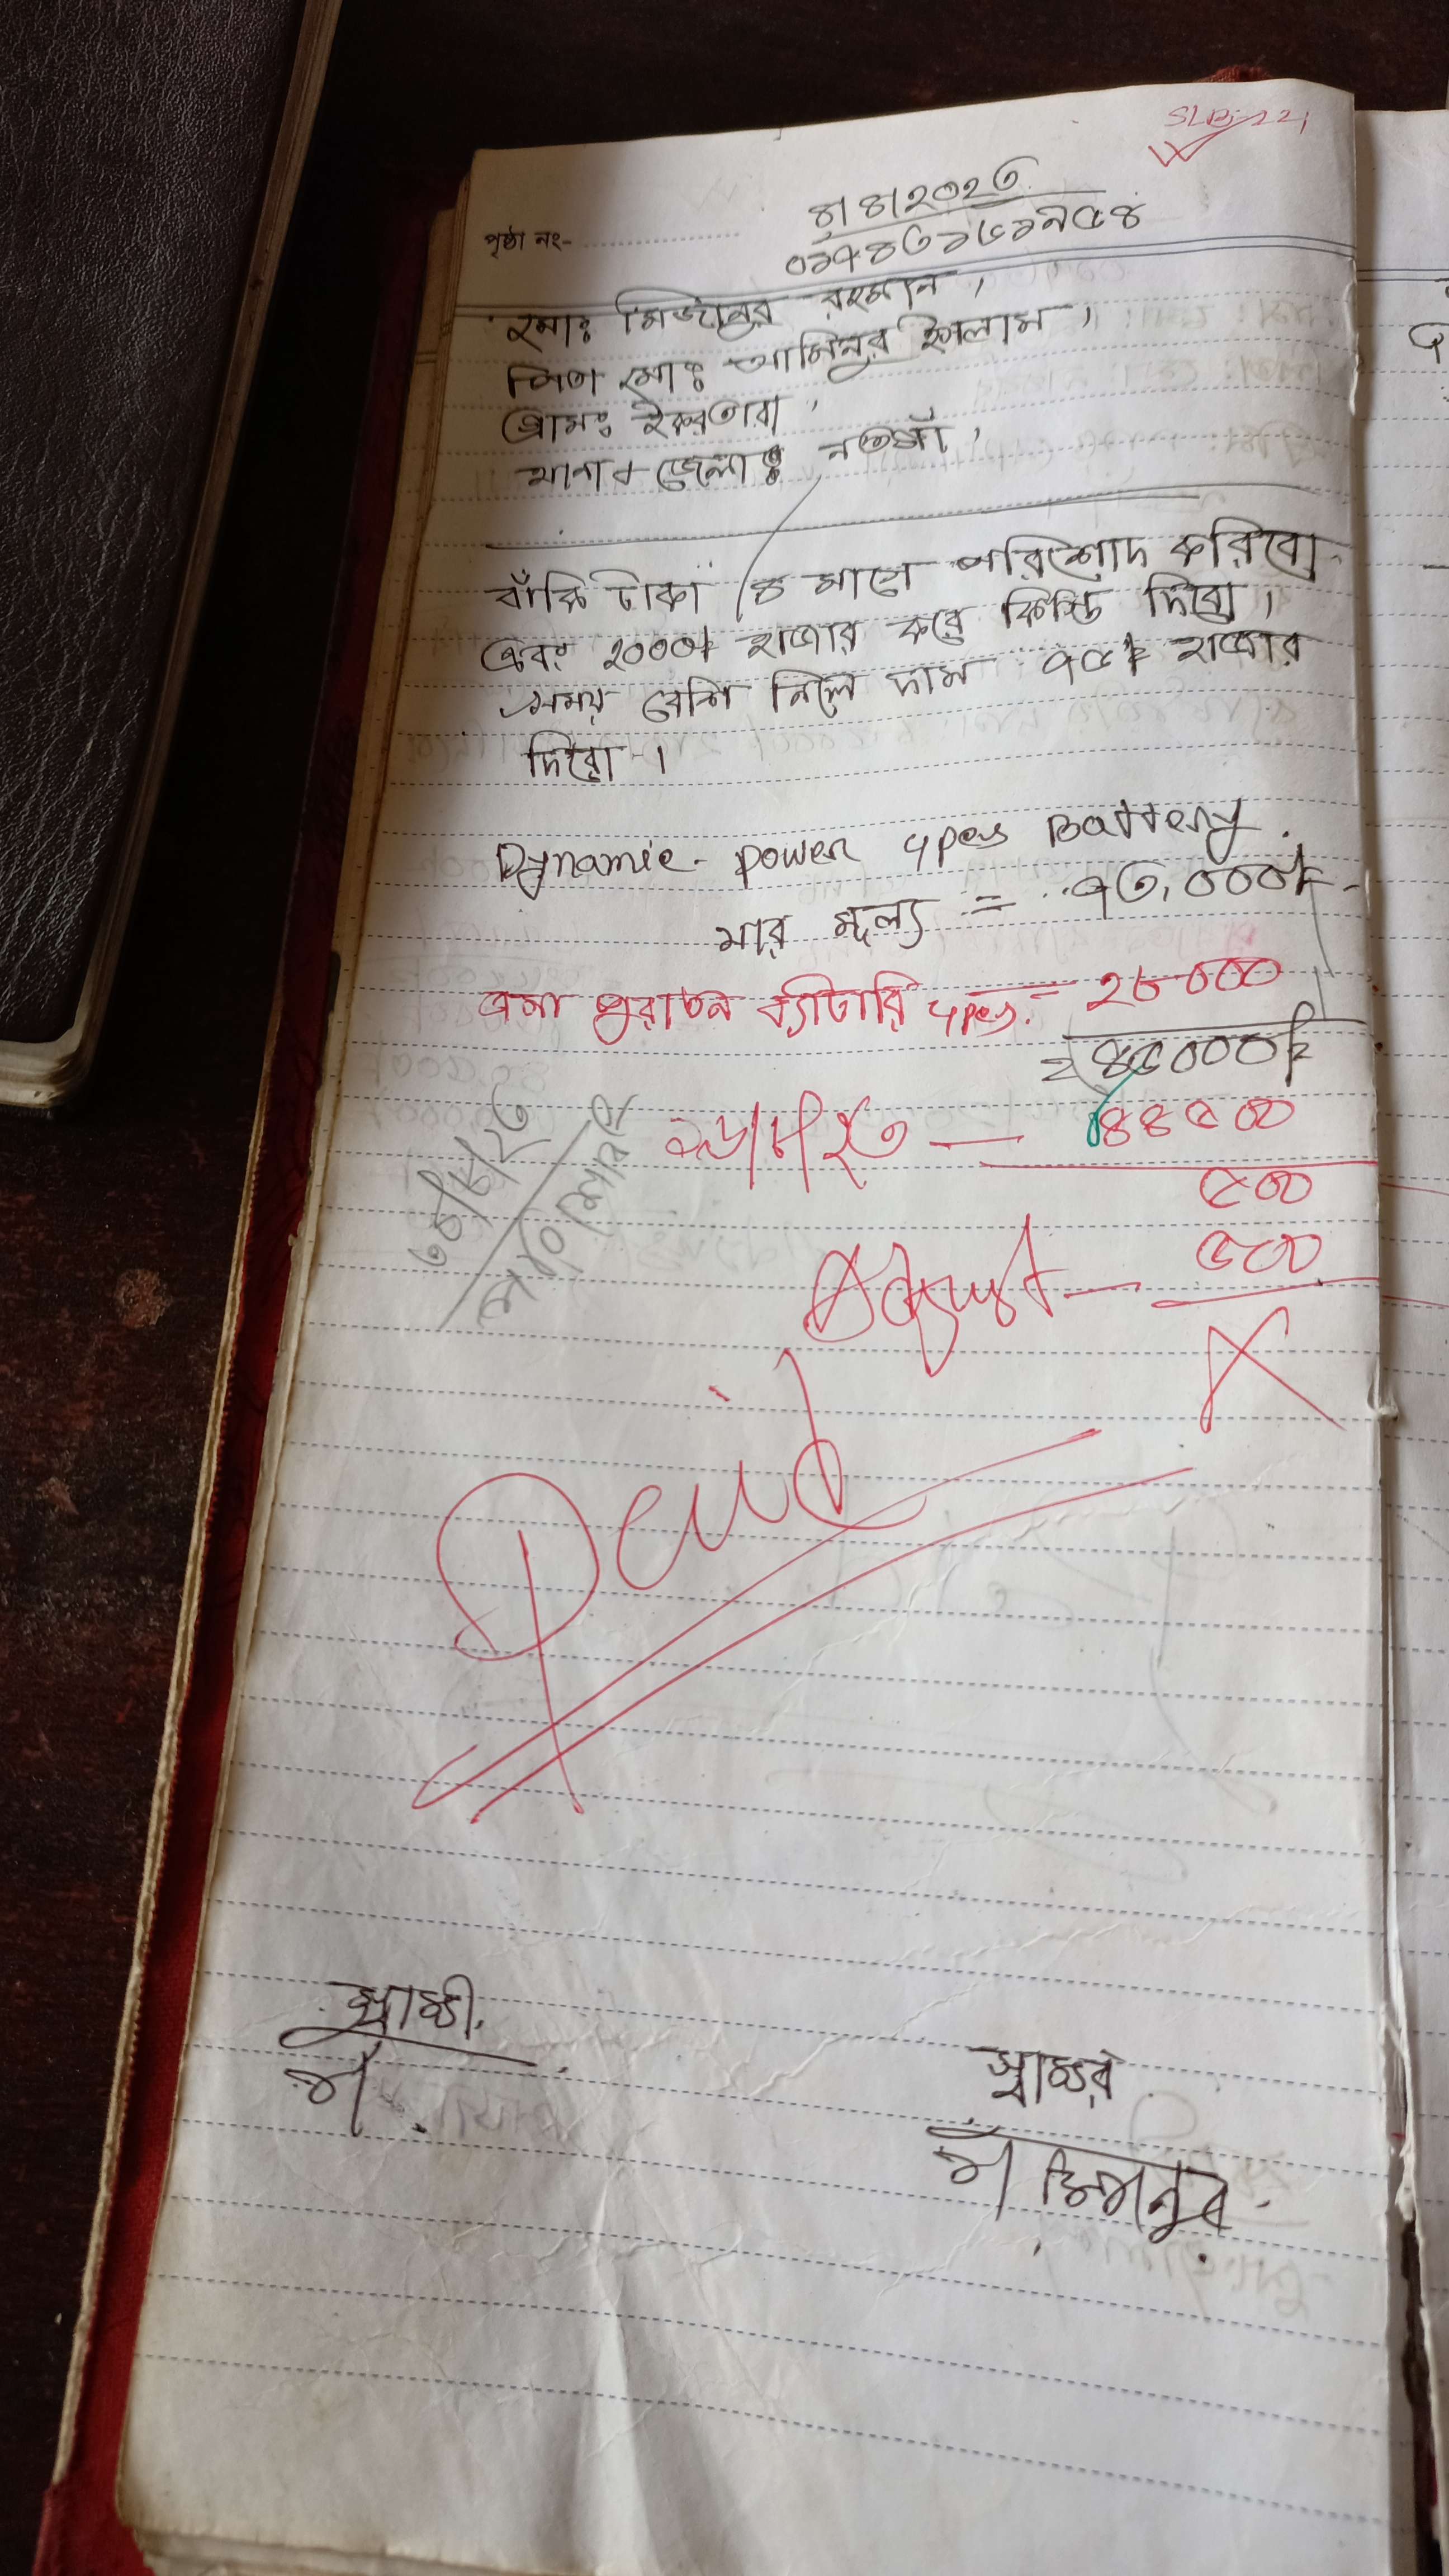 SLB-221
৪/৪/২০২৩
পৃষ্ঠা নং-
০১৭৪৩১৬১৯৫৪
মোঃ মিজানুর রহমান,
পিতা মোঃ আমিনুর ইসলাম,
গ্রামঃ ইকরতারা,
থানা ও জেলাঃ নওগাঁ,
বাঁকি টাকা ৪ মাসে পরিশোদ করিবো
এবং ২০০০/ হাজার করে কিস্তি দিবো।
সময় বেশি নিলে দাম ৭৫/ হাজার
দিবো।
Dynamic Power 4pes Battery.
যার মূল্য = ৭৩,০০০/-
জমা পুরাতন ব্যাটারি 4pes. = ২৮০০০
= ৪৫০০০/
১৬/৮/২৩ — ৪৪৫০০
৫০০
Adjust — ৫০০
X
৩০/৮/২৩
Paid
স্বাক্ষী.
স্বাক্ষর
মিজানুর